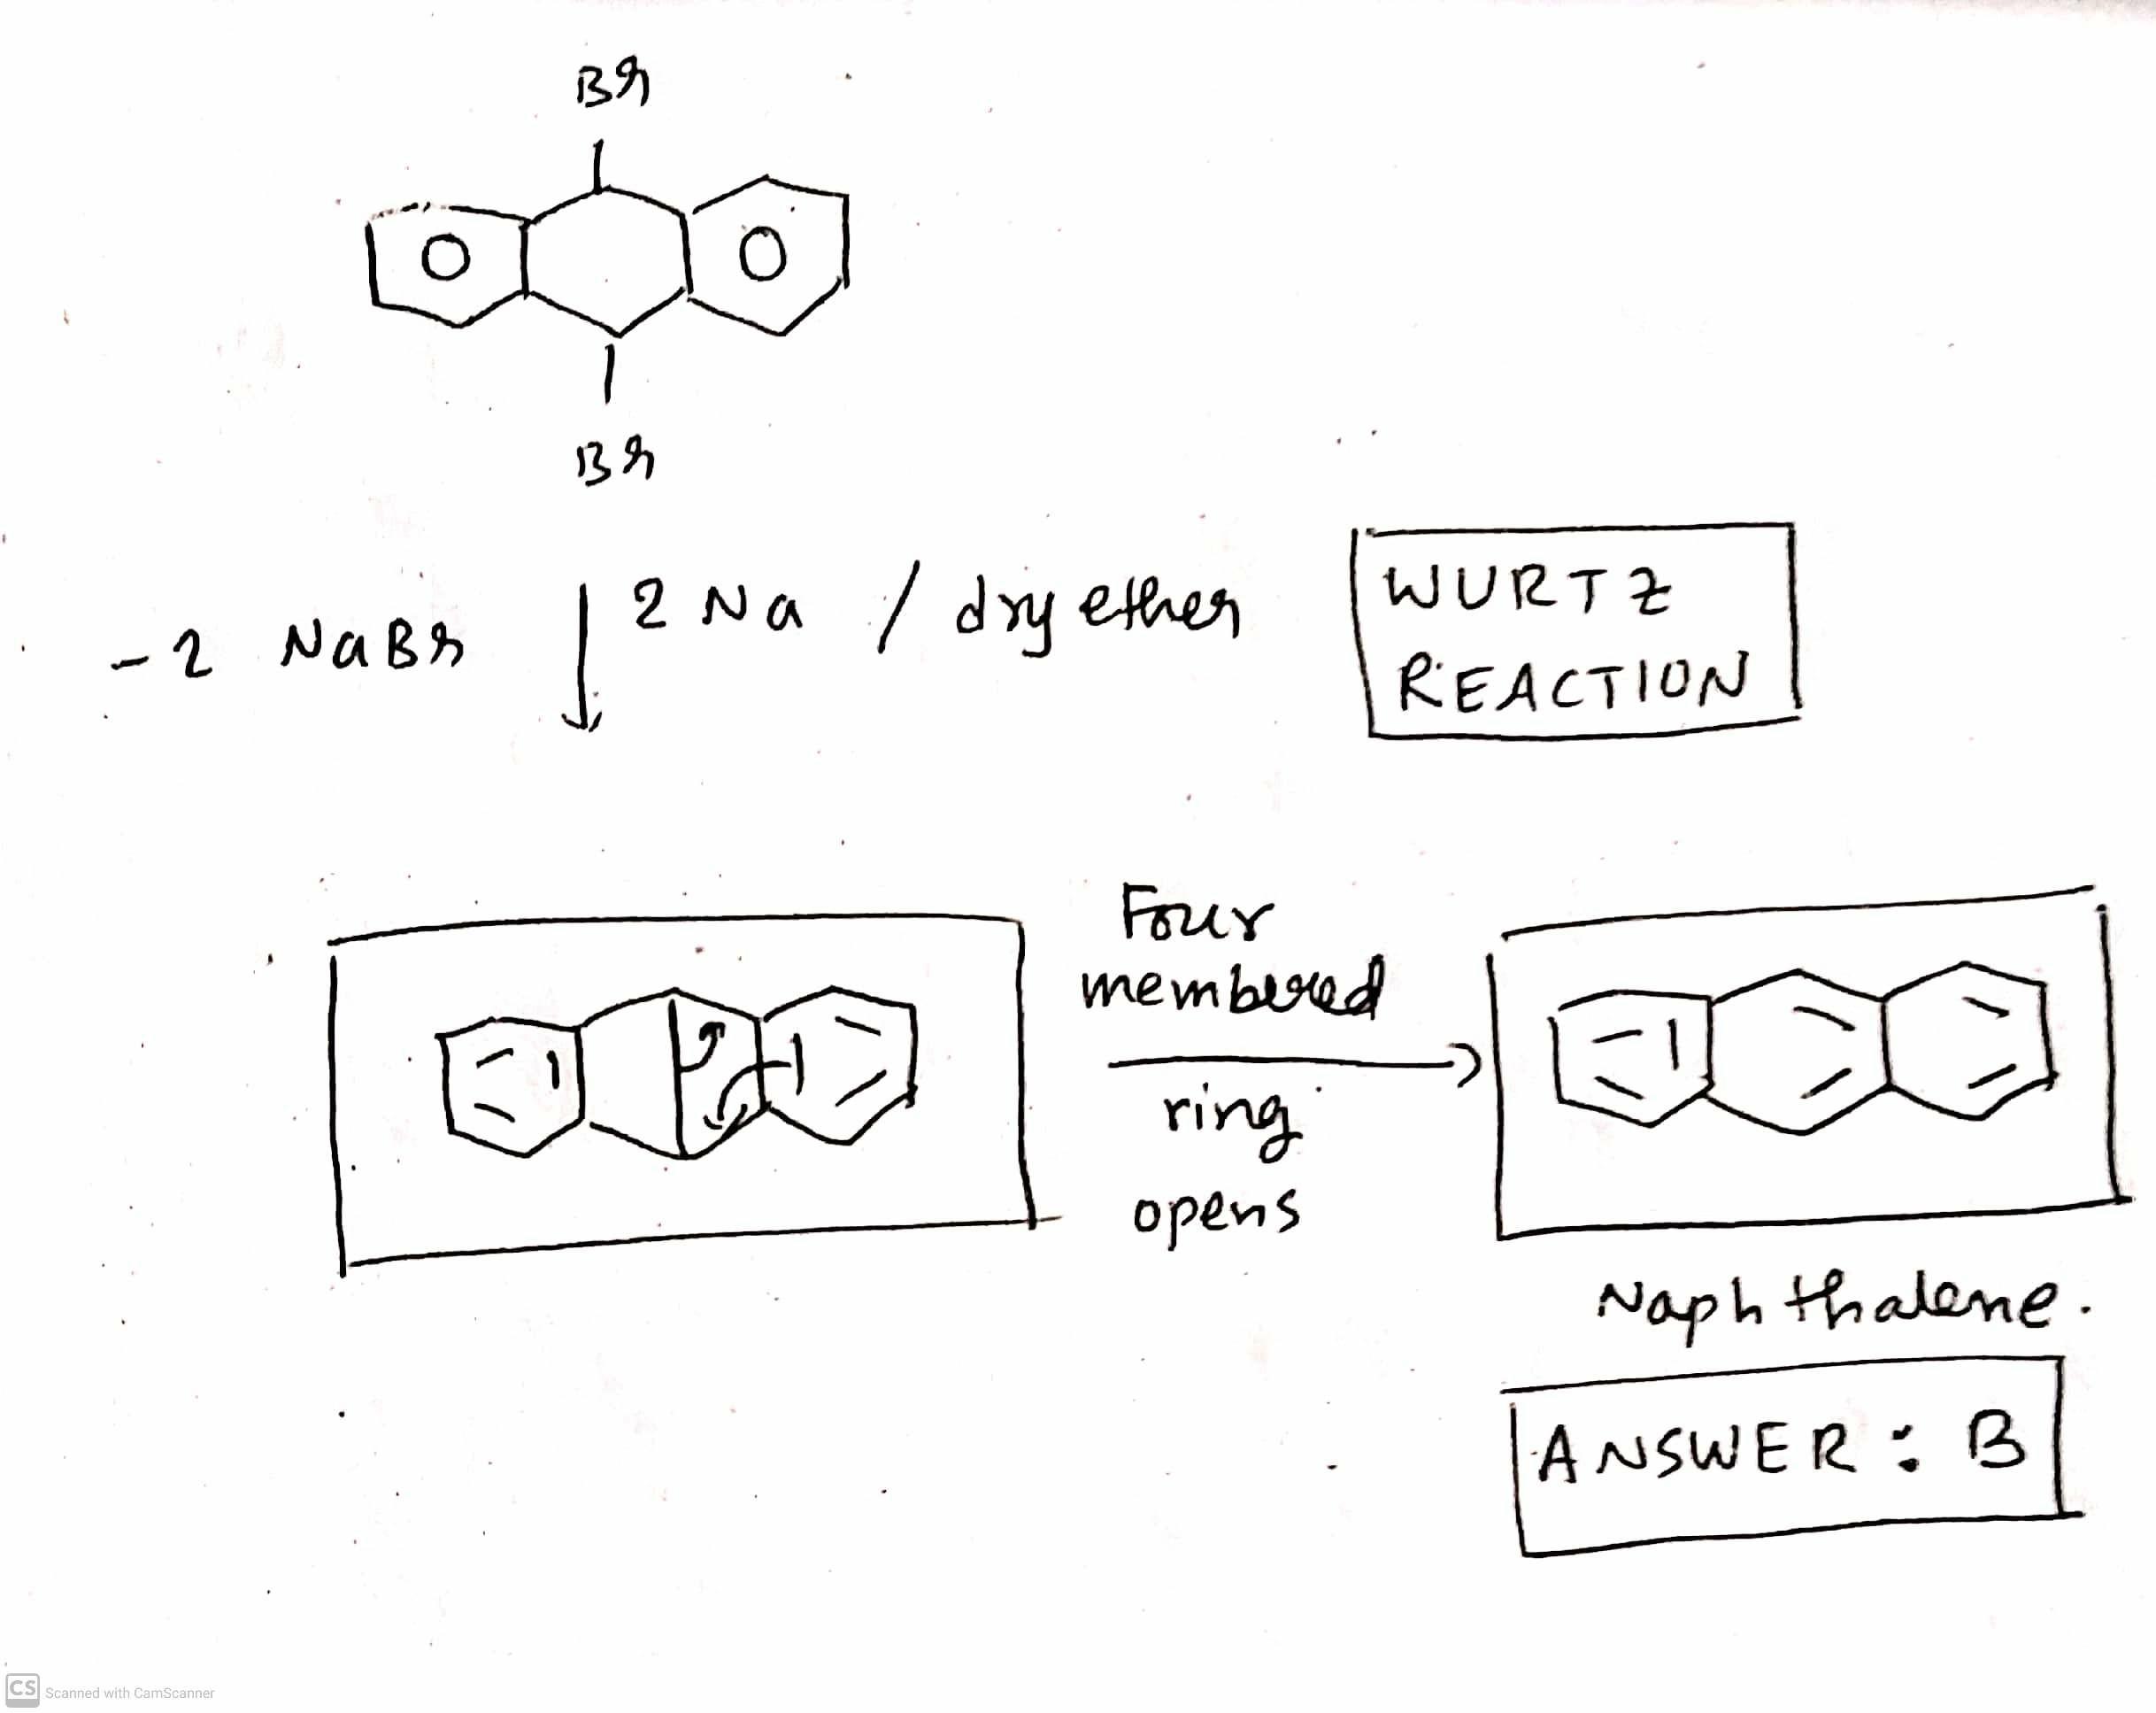 Br
Br
-2 NaBr
2 Na / dry ether
WURTZ
REACTION
Four
membered
ring
opens
Naphthalene.
ANSWER : B
CS Scanned with CamScanner